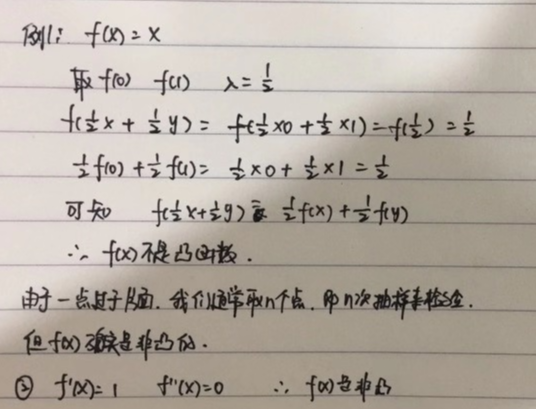 例1: f(x) = x
取 f(0) f(1) λ = 1/2
f(1/2 x + 1/2 y) = f(1/2 × 0 + 1/2 × 1) = f(1/2) = 1/2
1/2 f(0) + 1/2 f(1) = 1/2 × 0 + 1/2 × 1 = 1/2
可知 f(1/2 x + 1/2 y) 1/2 f(x) + 1/2 f(y)
∴ f(x) 不是凸函数.
由于一点过于片面, 我们通常取n个点, 即n次抽样来检验.
但 f(x) 确实是非凸的.
② f'(x) = 1 f''(x) = 0 ∴ f(x) 是非凸